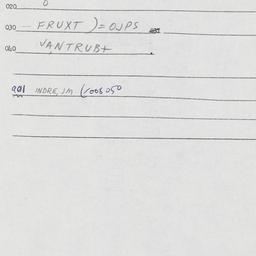 020 0
030 FRUXT ) = OJPS
040 VANTRUB+
901 INDRE, JM (1008050